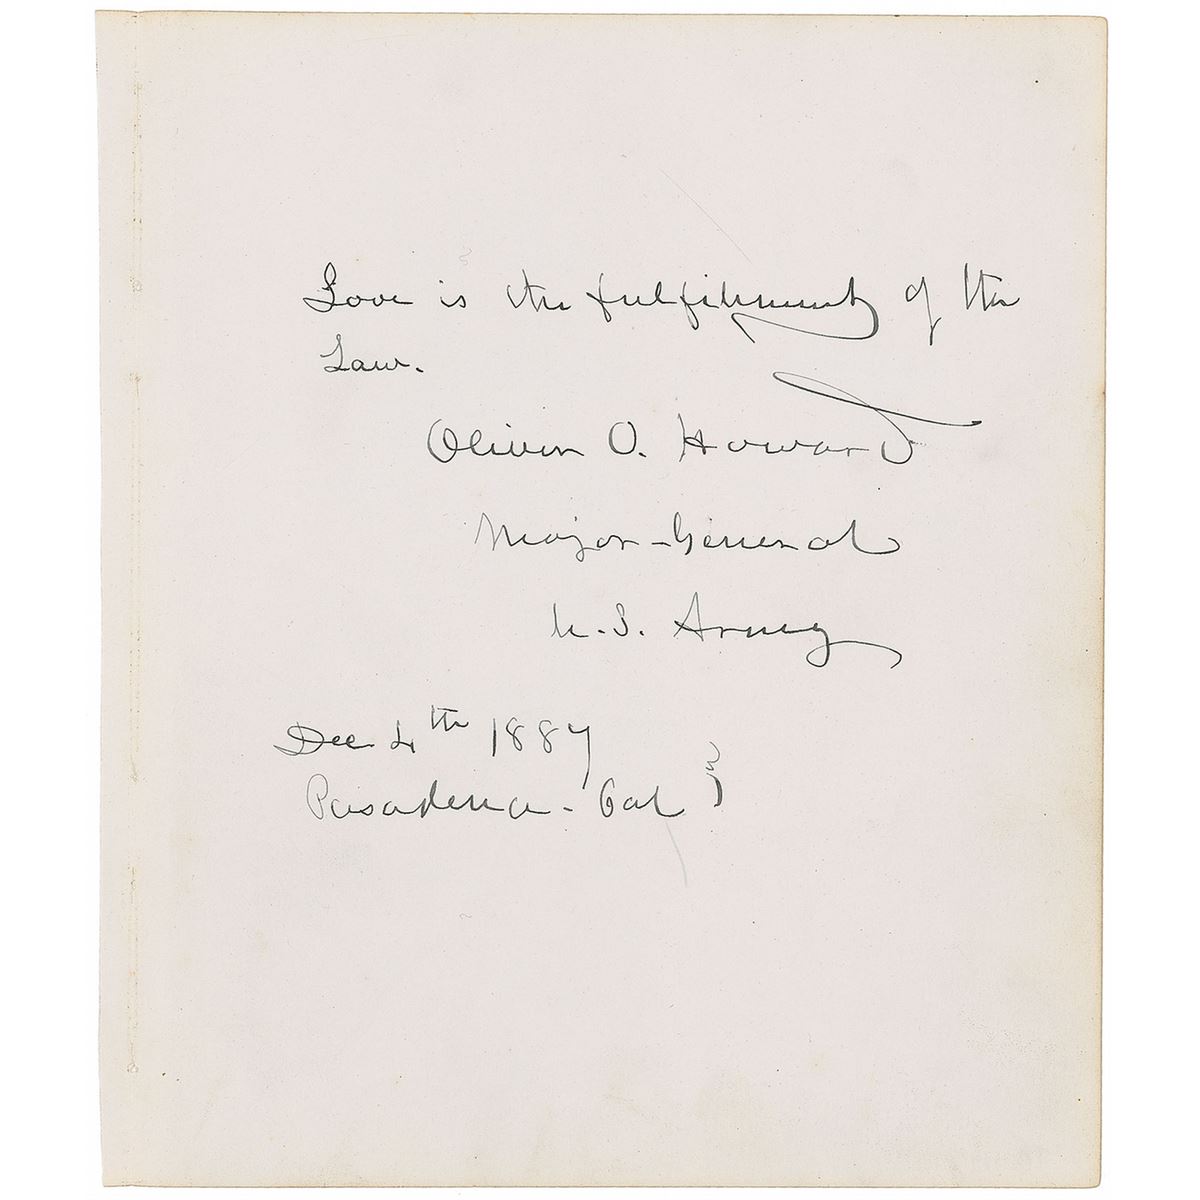 Love is the fulfilment of the
Law.
Oliver O. Howard
Major-General
U.S. Army
Dec 4th 1887
Pasadena - Cal